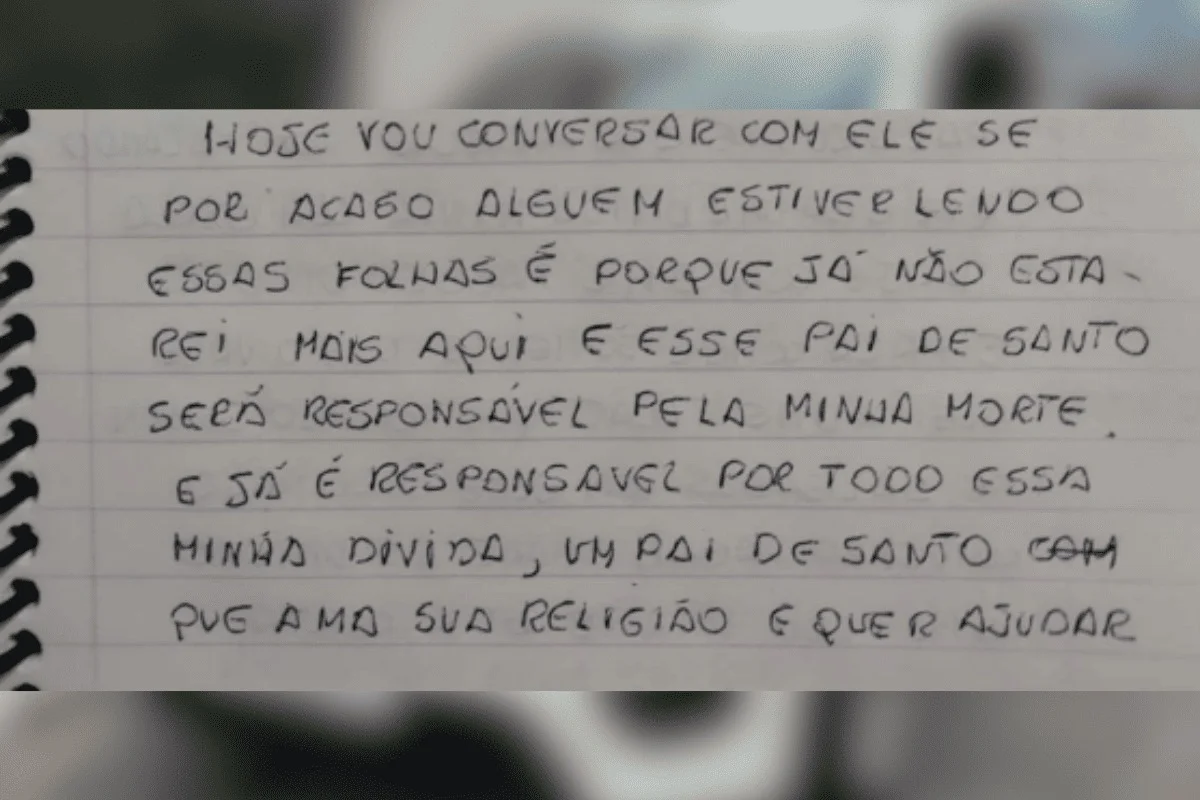 HOJE VOU CONVERSAR COM ELE SE
POR ACASO ALGUEM ESTIVER LENDO
ESSAS FOLHAS É PORQUE JÁ NÃO ESTA-
REI MAIS AQUI E ESSE PAI DE SANTO
SERÁ RESPONSÁVEL PELA MINHA MORTE.
E JÁ É RESPONSAVEL POR TODO ESSA
MINHA DIVIDA, UM PAI DE SANTO COM
QUE AMA SUA RELIGIÃO E QUER AJUDAR